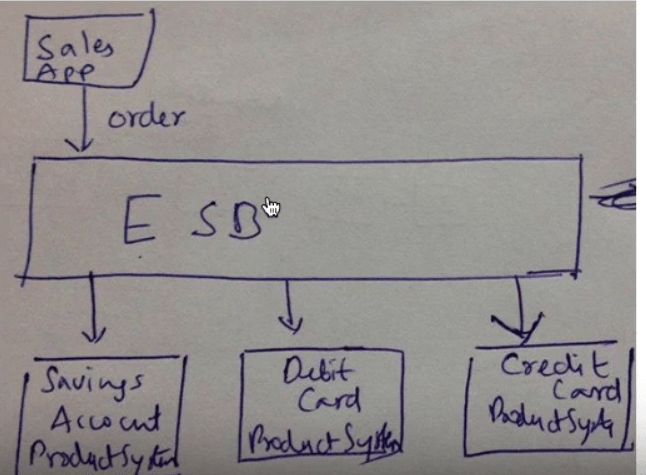 Sales
App
order
E SB
Savings
Account
Product System
Debit
Card
Product System
Credit
Card
Product Syste